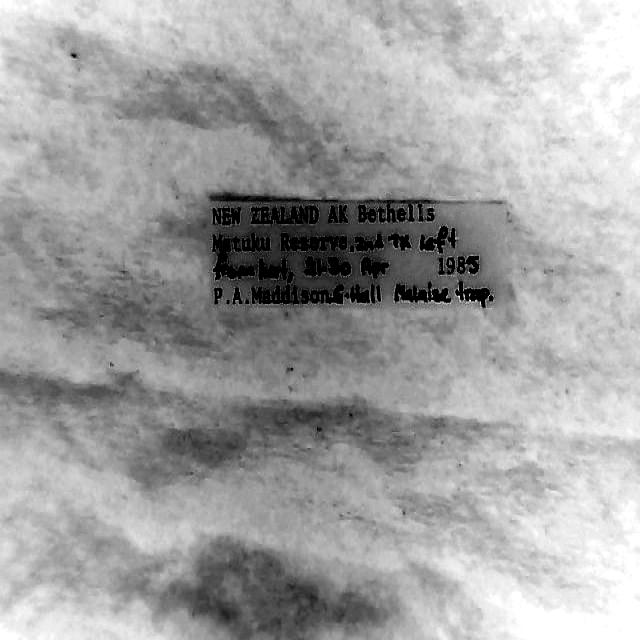 NEW ZEALAND AK Bethells
Matuku Reserve, 2nd tk left
from hut, 21-30 Apr 1985
P.A.Maddison & Hall Malaise trap.